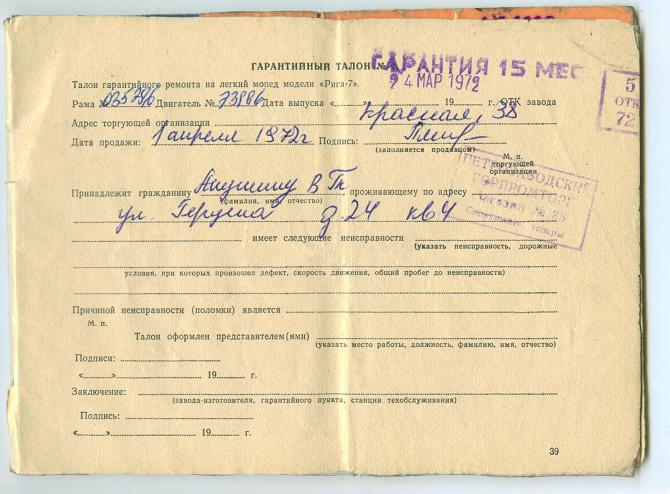 ГАРАНТИЙНЫЙ ТАЛОН №
ГАРАНТИЯ 15 МЕС
24 МАР 1972
5
ОТК
72
Талон гарантийного ремонта на легкий мопед модели «Рига-7».
Рама № Двигатель № 73886 Дата выпуска « » 19 г. ОТК завода
Адрес торгующей организации Красная, 38
Дата продажи: 1 апреля 1972г Подпись:
(заполняется продавцом)
М. п.
торгующей
организации
ПЕТРОЗАВОДСКИЙ
ГОРПРОМТОРГ
МАГАЗИН № 28
Спортивные товары
Принадлежит гражданину проживающему по адресу
(фамилия, имя, отчество)
ул. д. 24 кв 4
имеет следующие неисправности
(указать неисправность, дорожные
условия, при которых произошел дефект, скорость движения, общий пробег до неисправности)
Причиной неисправности (поломки) является
М. п.
Талон оформлен представителем(ями)
(указать место работы, должность, фамилию, имя, отчество)
Подписи:
« » 19 г.
Заключение:
(завода-изготовителя, гарантийного пункта, станции техобслуживания)
Подпись:
« » 19 г.
39